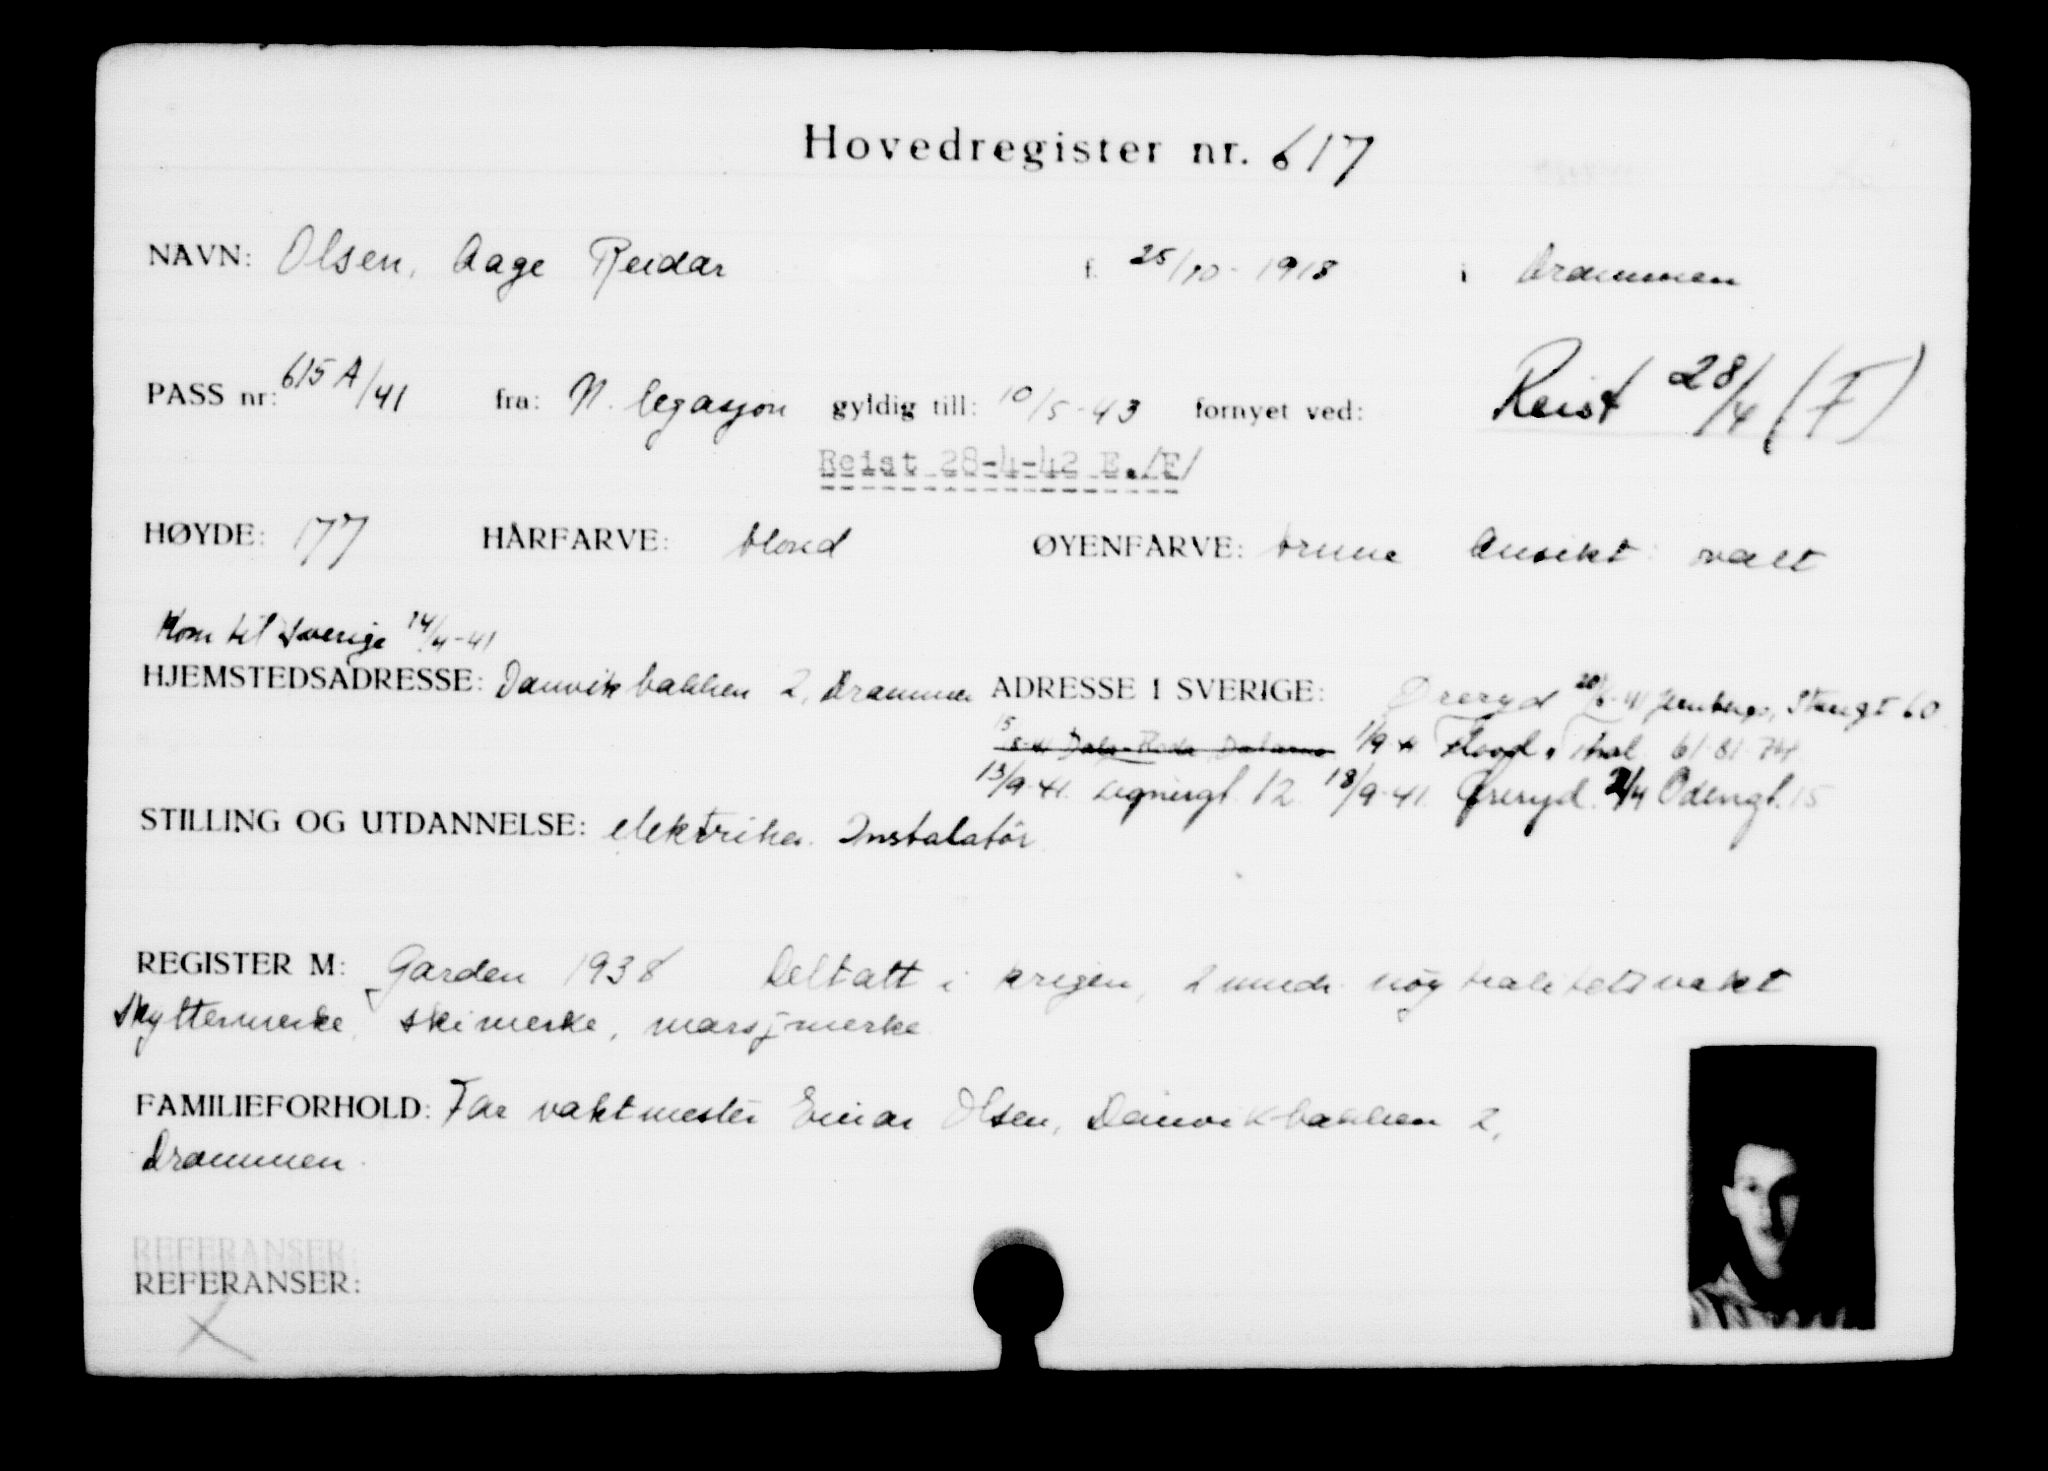 Hovedregister nr. 617
NAVN: Olsen, Aage Reidar f. 25/10-1918 i Drammen
PASS nr: 615 A/41 fra: N. legasjon gyldig till: 10/5-43 fornyet ved: Reist 28/4 (F)
Reist 28-4-42 E./F/
HØYDE: 177 HÅRFARVE: blond ØYENFARVE: brune Ansikt: ovalt
Kom til Sverige 14/4-41
HJEMSTEDSADRESSE: Danvikbakken 2, Drammen ADRESSE I SVERIGE: Øreryd 20/6-41 60
15/8-41 1/9-41 61.81.74
13/9-41. 12. 18/9-41. Øreryd. 2/4 Odengt. 15
STILLING OG UTDANNELSE: elektriker. Instalatör
REGISTER M: Garden 1938 Deltatt i krigen, 2 mndr. nøytralitetsvakt
Skyttermerke, skimerke, marsjmerke
FAMILIEFORHOLD: Far vaktmester Einar Olsen, Danvikbakken 2,
Drammen.
REFERANSER:
REFERANSER:
X